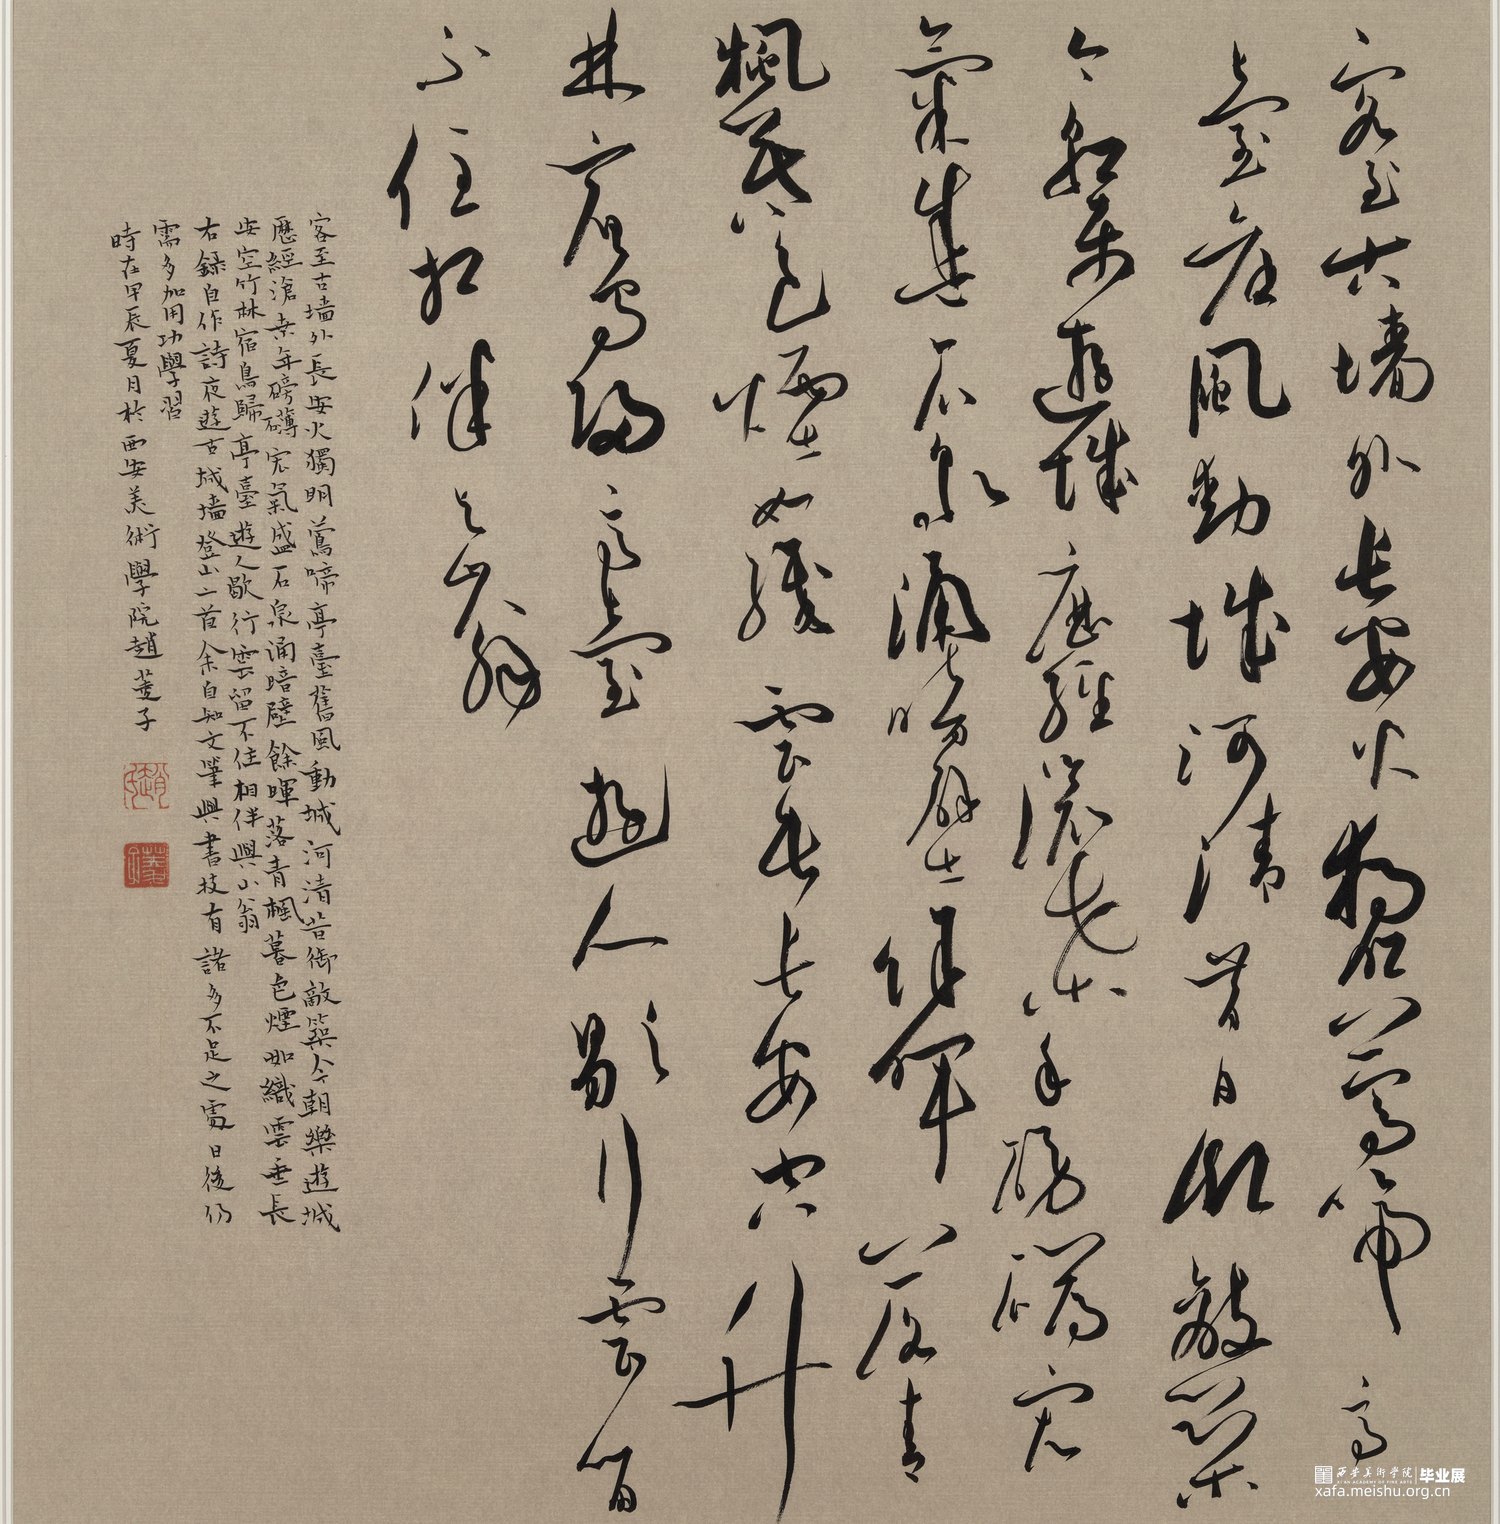 客至古墙外長安火獨明鶯啼亭
臺舊風動城河清昔日御敵築
今朝樂遊城歷經滄桑年磅礴宏
氣盛石泉涌暗壁餘暉落青
楓暮色煙如織雲垂長安空竹
林宿鳥歸亭臺遊人歇行雲留
不住相伴與山翁
客至古墙外長安火獨明鶯啼亭臺舊風動城河清昔御敵築今朝樂遊城
歷經滄桑年磅礴宏氣盛石泉涌暗壁餘暉落青楓暮色煙如織雲垂長
安空竹林宿鳥歸亭臺遊人歇行雲留不住相伴與山翁
右錄自作詩夜遊古城墙登山二首余自知文筆與書技有諸多不足之處日後仍
需多加用功學習
時在甲辰夏月於西安美術學院趙菱子
西安美術學院 毕业展
XI'AN ACADEMY OF FINE ARTS
xafa.meishu.org.cn